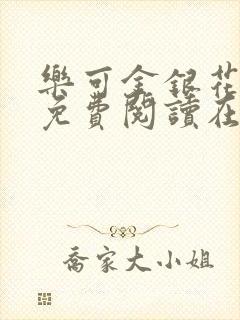 樂可金銀花
免費閱讀在
喬家大小姐